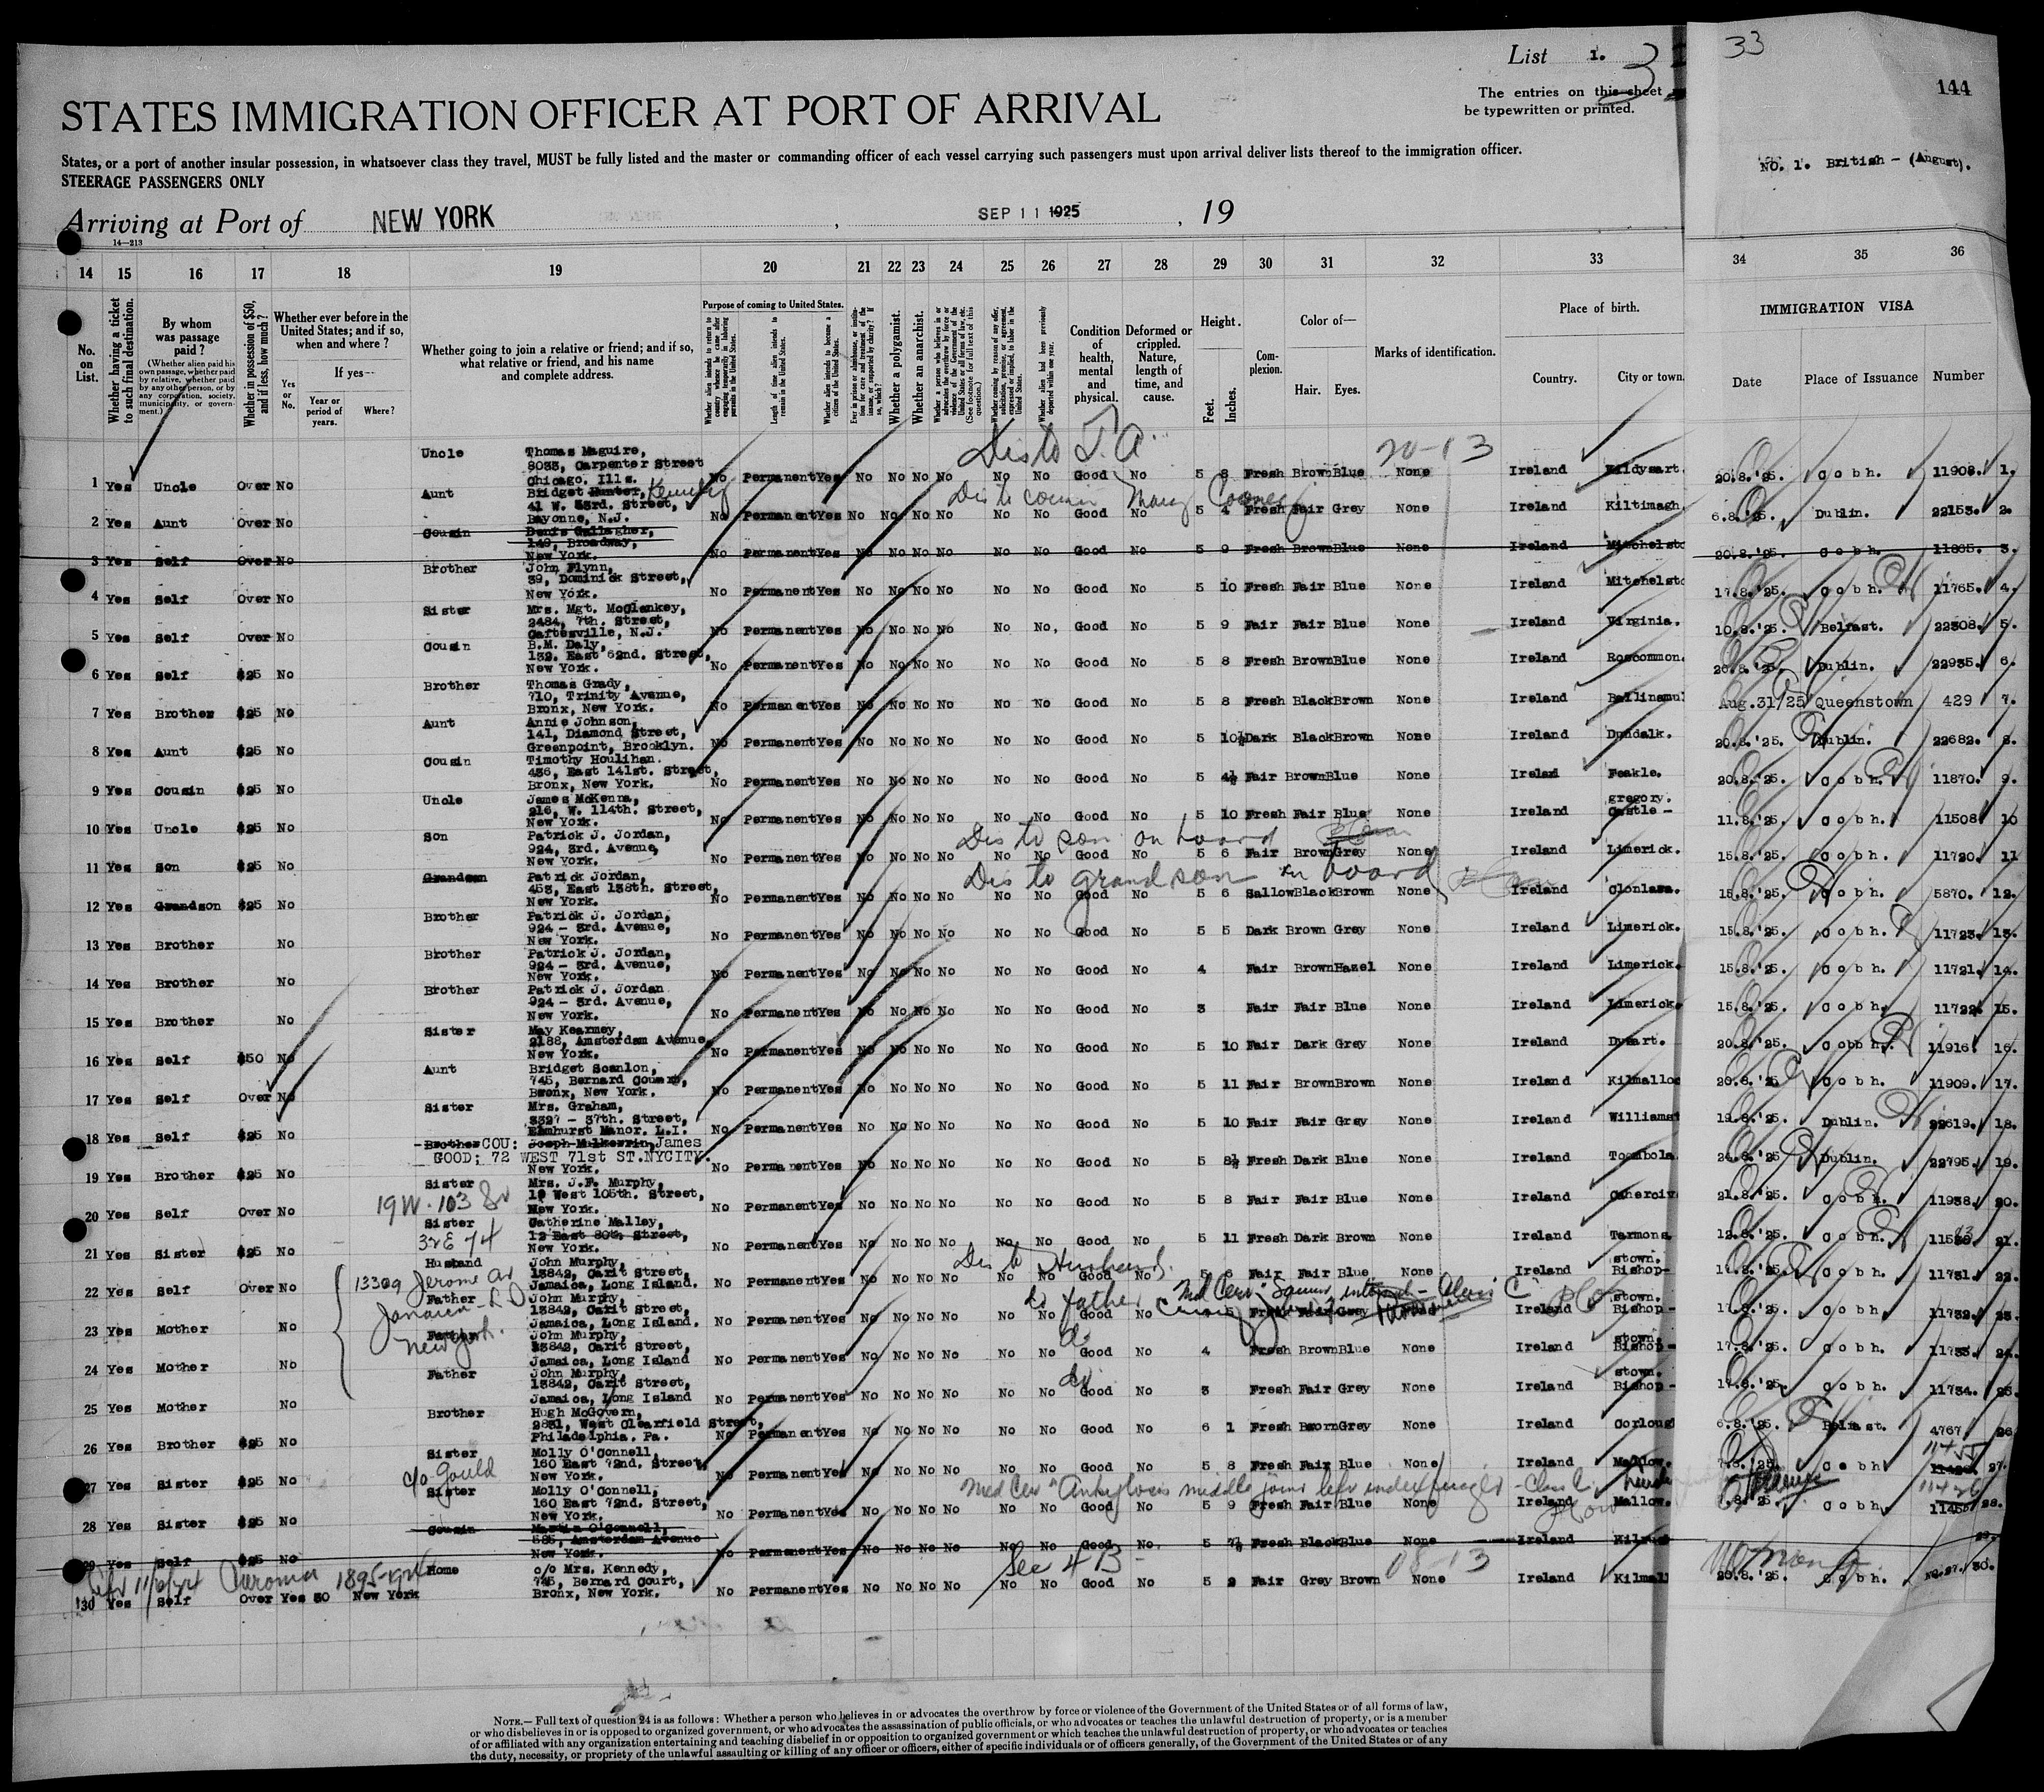 List 1. 3
33
144
The entries on this sheet
be typewritten or printed.
STATES IMMIGRATION OFFICER AT PORT OF ARRIVAL
States, or a port of another insular possession, in whatsoever class they travel, MUST be fully listed and the master or commanding officer of each vessel carrying such passengers must upon arrival deliver lists thereof to the immigration officer.
STEERAGE PASSENGERS ONLY
No. 1. British - (August).
Arriving at Port of NEW YORK , SEP 11 1925 , 19
14—213
14 15 16 17 18 19 20 21 22 23 24 25 26 27 28 29 30 31 32 33 34 35 36
No. on List.
Whether having a ticket to such final destination.
By whom was passage paid?
(Whether alien paid his own passage, whether paid by relative, whether paid by any other person, or by any corporation, society, municipality, or government.)
Whether in possession of $50, and if less, how much?
Whether ever before in the United States; and if so, when and where?
Yes or No.
If yes—
Year or period of years.
Where?
Whether going to join a relative or friend; and if so, what relative or friend, and his name and complete address.
Purpose of coming to United States.
Length of time alien intends to remain in the United States.
Whether alien intends to become a citizen of the United States.
Whether a polygamist.
Whether an anarchist.
Condition of health, mental and physical.
Deformed or crippled. Nature, length of time, and cause.
Height.
Feet. Inches.
Complexion.
Color of—
Hair. Eyes.
Marks of identification.
Place of birth.
Country. City or town.
IMMIGRATION VISA
Date Place of Issuance Number
Dis to
20-13
Uncle Thomas Maguire,
8033, Carpenter Street
Chicago. Ills.
1 Yes Uncle Over No No Permanent Yes No No No No No No Good No 5 8 Fresh Brown Blue None Ireland Kildysart. 20.8.'25. Cobh. 11908. 1.
Aunt Bridget Hunter,
41 W. 53rd. Street,
Bayonne, N.J.
Dis to cousin Mary Cooney
2 Yes Aunt Over No No Permanent Yes No No No No No No Good No 5 4 Fresh Fair Grey None Ireland Kiltimagh. 6.8.'25. Dublin. 22153. 2.
Cousin Denis Gallagher,
149, Broadway,
New York.
3 Yes Self Over No No Permanent Yes No No No No No No Good No 5 9 Fresh Brown Blue None Ireland Mitchelsto 20.8.'25. Cobh. 11865. 3.
Brother John Flynn,
39, Dominick Street,
New York.
4 Yes Self Over No No Permanent Yes No No No No No No Good No 5 10 Fresh Fair Blue None Ireland Mitchelsto 17.8.'25. Cobh. 11765. 4.
Sister Mrs. Mgt. McGlankey,
2484, 7th. Street,
Caftesville, N.J.
5 Yes Self Over No No Permanent Yes No No No No No No, Good No 5 9 Fair Fair Blue None Ireland Virginia. 10.8.'25. Belfast. 22308. 5.
Cousin B.M. Daly,
132, East 62nd. Street,
New York.
6 Yes Self $25 No No Permanent Yes No No No No No No Good No 5 8 Fresh Brown Blue None Ireland Roscommon. Dublin. 22935. 6.
Brother Thomas Grady,
710, Trinity Avenue,
Bronx, New York.
7 Yes Brother $25 No No Permanent Yes No No No No No No Good No 5 8 Fresh Black Brown None Ireland Ballinamu Aug.31/25 Queenstown 429 7.
Aunt Annie Johnson,
141, Diamond Street,
Greenpoint, Brooklyn.
8 Yes Aunt $25 No No Permanent Yes No No No No No No Good No 5 10½ Dark Black Brown None Ireland Dundalk. 20.8.'25. Dublin. 22682. 8.
Cousin Timothy Houlihan.
436, East 141st. Street,
Bronx, New York.
9 Yes Cousin $25 No No Permanent Yes No No No No No No Good No 5 4½ Fair Brown Blue None Ireland Feakle. 20.8.'25. Cobh. 11870. 9.
Uncle James McKenna,
216, W. 114th. Street,
New York.
gregory.
10 Yes Uncle $25 No No Permanent Yes No No No No No No Good No 5 10 Fresh Fair Blue None Ireland Castle - 11.8.'25. Cobh. 11508 10
Son Patrick J. Jordan,
924, 3rd. Avenue,
New York.
Dis to son on board
11 Yes Son $25 No No Permanent Yes No No No No No No Good No 5 6 Fair Brown Grey None Ireland Limerick. 15.8.'25. Cobh. 11720. 11
Grandson Patrick Jordan,
453, East 138th. Street,
New York.
Dis to grandson on board
12 Yes Grandson $25 No No Permanent Yes No No No No No No Good No 5 6 Sallow Black Brown None Ireland Clonlara. 15.8.'25. Cobh. 5870. 12.
Brother Patrick J. Jordan,
924 - 3rd. Avenue,
New York.
13 Yes Brother No No Permanent Yes No No No No No No Good No 5 5 Dark Brown Grey None Ireland Limerick. 15.8.'25. Cobh. 11723. 13.
Brother Patrick J. Jordan,
924 - 3rd. Avenue,
New York.
14 Yes Brother No No Permanent Yes No No No No No No Good No 4 Fair Brown Hazel None Ireland Limerick. 15.8.'25. Cobh. 11721. 14.
Brother Patrick J. Jordan
924 - 3rd. Avenue,
New York.
15 Yes Brother No No Permanent Yes No No No No No No Good No 3 Fair Fair Blue None Ireland Limerick. 15.8.'25. Cobh. 11722. 15.
Sister May Kearney,
2188, Amsterdam Avenue,
New York.
16 Yes Self $50 No No Permanent Yes No No No No No No Good No 5 10 Fair Dark Grey None Ireland Dysart. 20.8.'25. Cobh. 11916. 16.
Aunt Bridget Scanlon,
745, Bernard Court,
Bronx, New York.
17 Yes Self Over No No Permanent Yes No No No No No No Good No 5 11 Fair Brown Brown None Ireland Kilmalloc 20.8.'25. Cobh. 11909. 17.
Sister Mrs. Graham,
3327 - 37th. Street,
Elmhurst Manor. L.I.
18 Yes Self $25 No No Permanent Yes No No No No No No Good No 5 10 Fair Fair Grey None Ireland Williamst 19.8.'25. Dublin. 22619. 18.
Brother COU: Joseph Mulkerrin, James
GOOD; 72 WEST 71st ST.NYCITY.
New York.
19 Yes Brother $25 No No Permanent Yes No No No No No No Good No 5 8½ Fresh Dark Blue None Ireland Toombola. 24.8.'25. Dublin. 22795. 19.
Sister Mrs. J.F. Murphy,
19 West 105th. Street,
New York.
19 W. 103 St
20 Yes Self Over No No Permanent Yes No No No No No No Good No 5 8 Fair Fair Blue None Ireland Caherciv 21.8.'25. Cobh. 11938. 20.
Sister Catherine Malley,
12 East 80th Street,
New York.
32 E 74
21 Yes Sister $25 No No Permanent Yes No No No No No No Good No 5 11 Fresh Dark Brown None Ireland Termons 12.8.'25. Cobh. 21.
Husband John Murphy,
13842, Carit Street,
Jamaica, Long Island.
Dis to Husband.
stown.
22 Yes Self Over No No Permanent Yes No No No No No No Good No 5 6 Fair Fair Blue None Ireland Bishop- 17.8.'25. Cobh. 11731. 22.
13309 Jerome Av
Jamaica - L I
New York.
Father John Murphy,
13842, Carit Street,
Jamaica, Long Island.
do father Med Cer: Class C
stown.
23 Yes Mother No No Permanent Yes No No No No No No Good No Fair Grey Ireland Bishop - 17.8.'25. Cobh. 11732. 23.
Father John Murphy,
13842, Carit Street,
Jamaica, Long Island
do
stown.
24 Yes Mother No No Permanent Yes No No No No No No Good No 4 Fresh Brown Blue None Ireland Bishop - 17.8.'25. Cobh. 11733. 24.
Father John Murphy,
13842, Carit Street,
Jamaica, Long Island
do
stown.
25 Yes Mother No No Permanent Yes No No No No No No Good No 3 Fresh Fair Grey None Ireland Bishop - 17.8.'25. Cobh. 11734. 25.
Brother Hugh McGovern,
2831, West Clearfield Street,
Philadelphia. Pa.
26 Yes Brother $25 No No Permanent Yes No No No No No No Good No 6 1 Fresh Brown Grey None Ireland Corloug 6.8.'25. Belfast. 4767. 26
Sister Molly O'Connell,
160 East 72nd. Street,
New York.
c/o Gould
27 Yes Sister $25 No No Permanent Yes No No No No No No Good No 5 8 Fresh Fair Blue None Ireland Mallow. Cobh 11455 27.
Sister Molly O'Connell,
160 East 72nd. Street,
New York.
Med Cer "Ankylosis middle joint left index finger - Class C
28 Yes Sister $25 No No Permanent Yes No No No No No No Good No 5 9 Fresh Fair Blue None Ireland Mallow. Cobh. 28.
Cousin Martin O'Connell,
585, Amsterdam Avenue
New York.
29 Yes Self $25 No No Permanent Yes No No No No No No Good No. 5 7½ Fresh Black Blue None Ireland Kilrush 29.
Sec 4 B -
Home c/o Mrs. Kennedy,
745, Bernard Court,
Bronx, New York.
1895-1924
30 Yes Self Over Yes 30 New York No Permanent Yes No No No No No No Good No 5 9 Fair Grey Brown None Ireland Kilmall 20.8.'25. Cobh. No.27. 30.
NOTE.— Full text of question 24 is as follows: Whether a person who believes in or advocates the overthrow by force or violence of the Government of the United States or of all forms of law,
or who disbelieves in or is opposed to organized government, or who advocates the assassination of public officials, or who advocates or teaches the unlawful destruction of property, or is a member
of or affiliated with any organization entertaining and teaching disbelief in or opposition to organized government or which teaches the unlawful destruction of property, or who advocates or teaches
the duty, necessity, or propriety of the unlawful assaulting or killing of any officer or officers, either of specific individuals or of officers generally, of the Government of the United States or of any